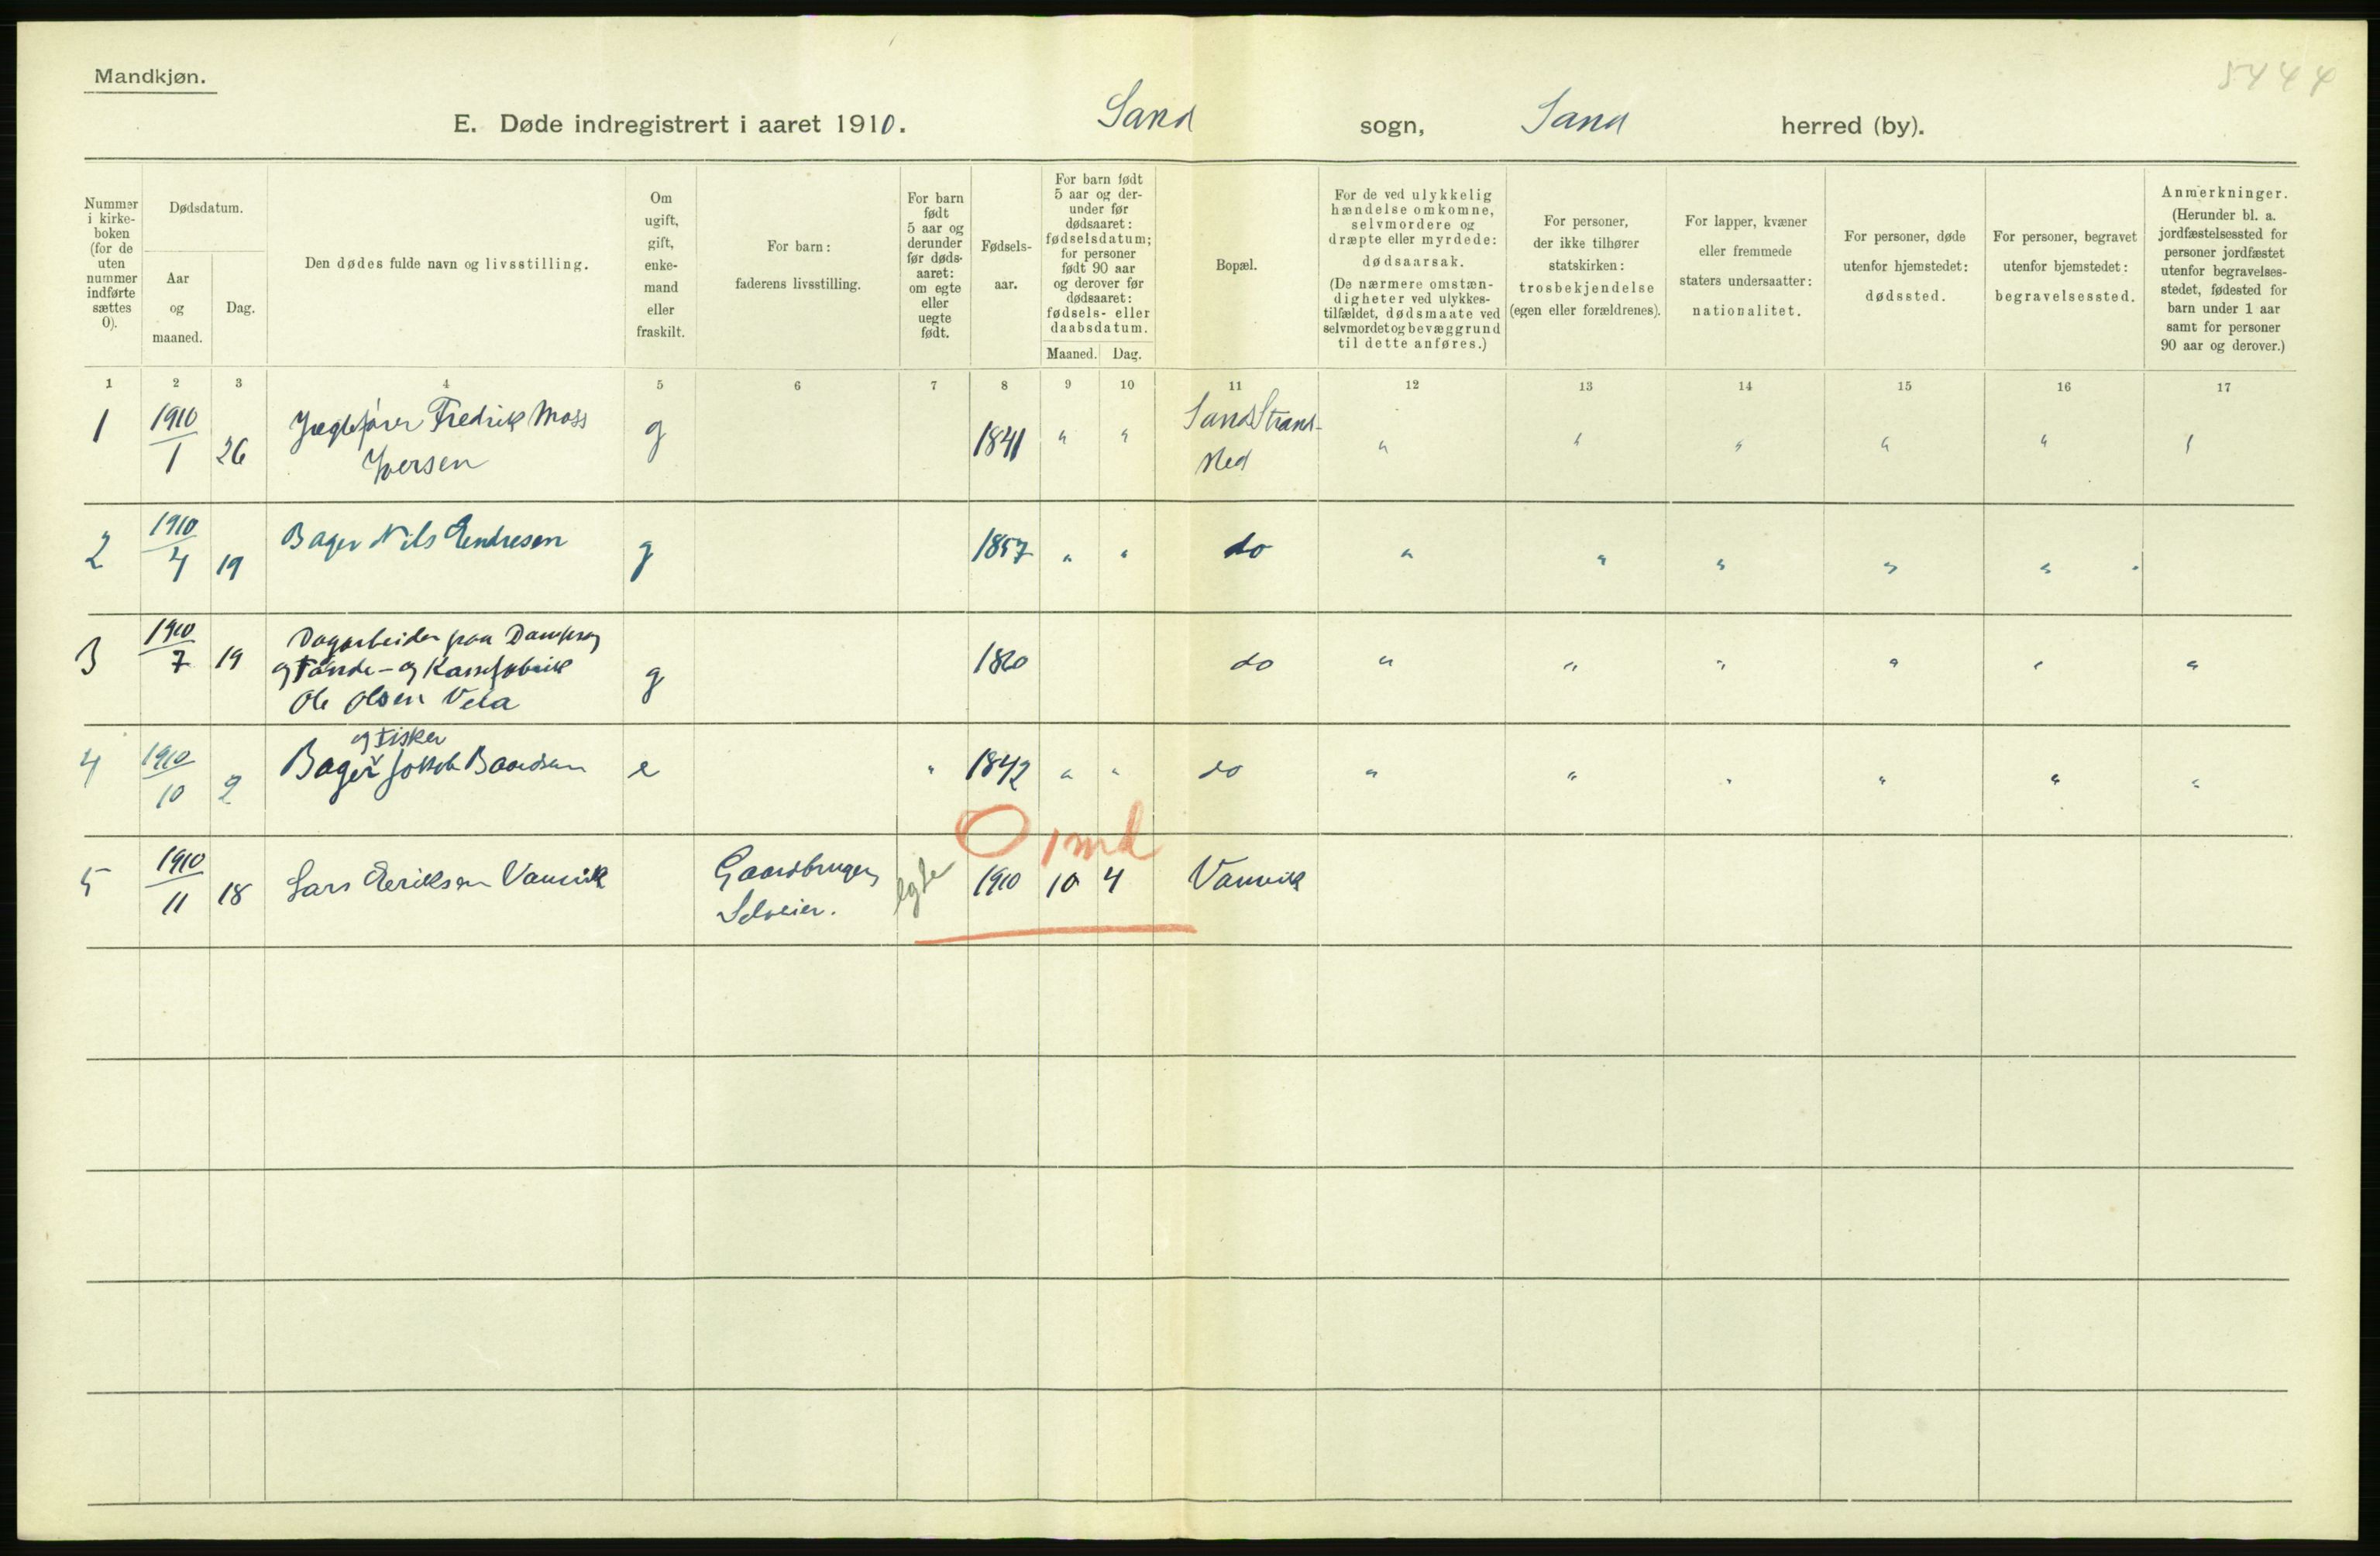 Mandkjøn.
5444
E. Døde indregistrert i aaret 1910. Sand sogn, Sand herred (by).
Nummer i kirke-boken (for de uten nummer indførte sættes 0).
Dødsdatum.
Aar og maaned.
Dag.
Den dødes fulde navn og livsstilling.
Om ugift, gift, enke-mand eller fraskilt.
For barn: faderens livsstilling.
For barn født 5 aar og derunder før døds-aaret: om egte eller uegte født.
Fødsels-aar.
For barn født 5 aar og der-under før dødsaaret: fødselsdatum; for personer født 90 aar og derover før dødsaaret: fødsels- eller daabsdatum.
Maaned. Dag.
Bopæl.
For de ved ulykkelig hændelse omkomne, selvmordere og dræpte eller myrdede: dødsaarsak. (De nærmere omstæn-digheter ved ulykkes-tilfældet, dødsmaate ved selvmordet og bevæggrund til dette anføres.)
For personer, der ikke tilhører statskirken: trosbekjendelse (egen eller forældrenes).
For lapper, kvæner eller fremmede staters undersaatter: nationalitet.
For personer, døde utenfor hjemstedet: dødssted.
For personer, begravet utenfor hjemstedet: begravelsessted.
Anmerkninger. (Herunder bl. a. jordfæstelsessted for personer jordfæstet utenfor begravelses-stedet, fødested for barn under 1 aar samt for personer 90 aar og derover.)
1 2 3 4 5 6 7 8 9 10 11 12 13 14 15 16 17
1 1910/1 26 Jægtefører Fredrik Moss g 1841 " " Sand Strand- " " " " "
Iversen sted
2 1910/4 19 Bager Nils Endresen g 1857 " " do " " " " "
3 1910/7 19 Dagarbeider paa Dampsag 1860 do " " " " " "
og Tønde- og Kassefabrik g
Ole Olsen Vela
og Fisker
4 1910/10 2 Bager Jakob Baardsen e " 1842 " " do " " " " " "
0 1 md
5 1910/11 18 Lars Eeriksen Vanvik Gaardbruger, egte 1910 10 4 Vanvik
Selveier.